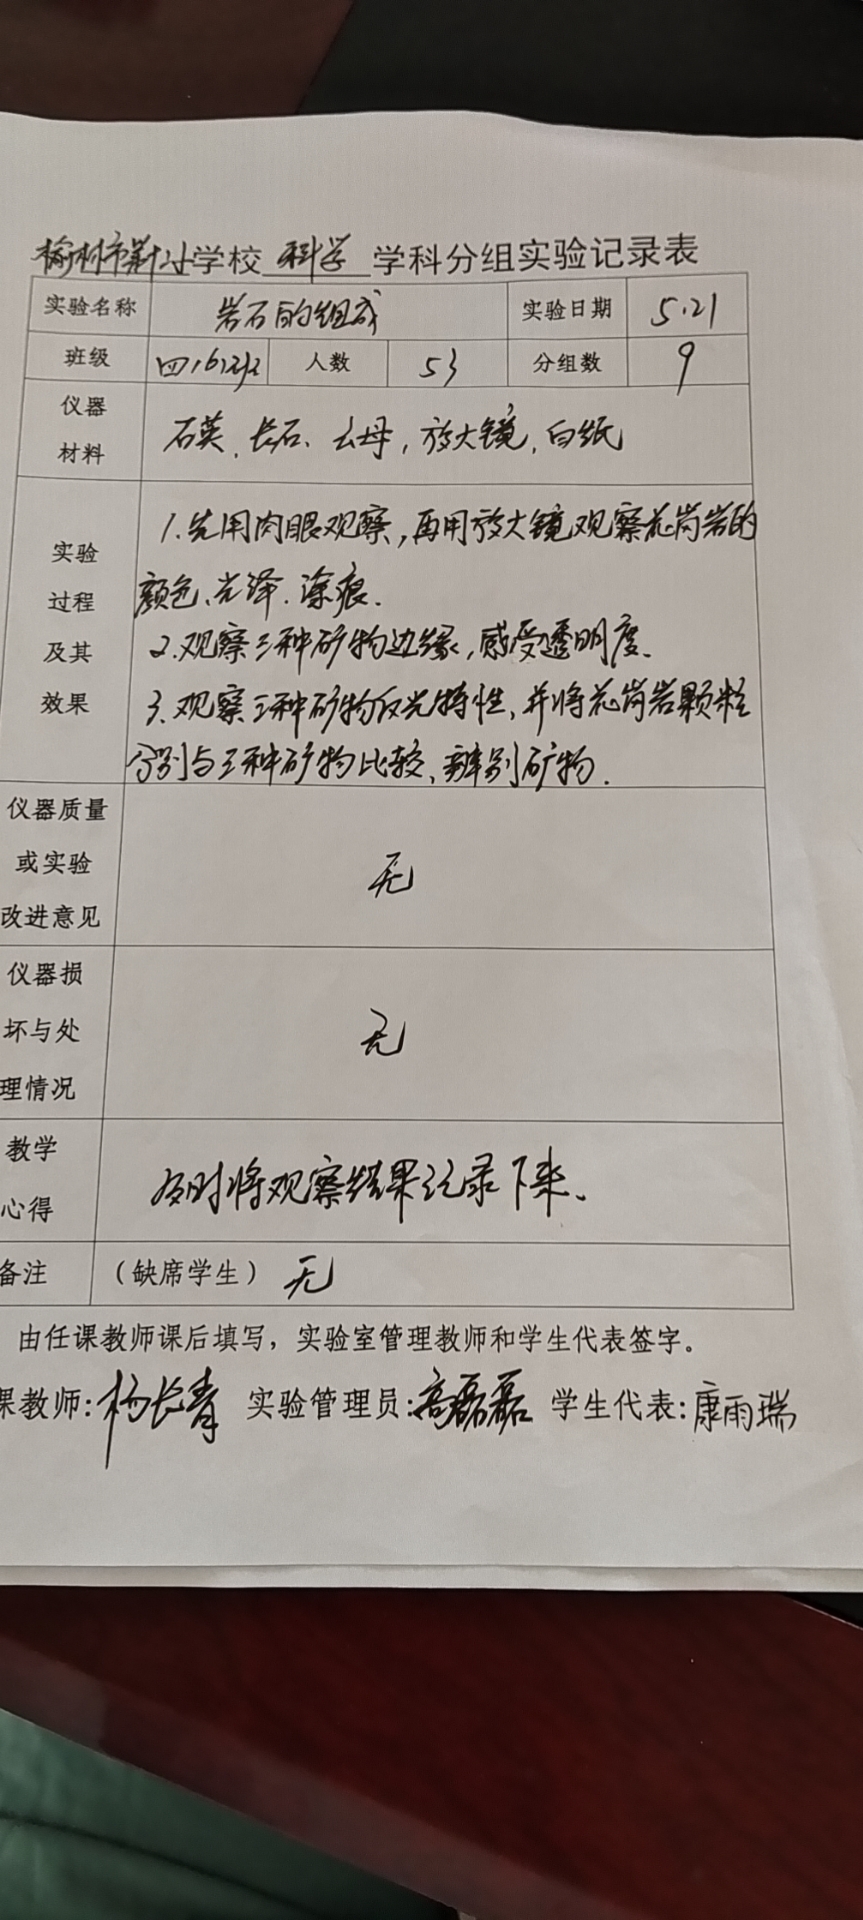 榆林市第十小学校 科学 学科分组实验记录表
实验名称 岩石的组成 实验日期 5.21
班级 人数 53 分组数 9
仪器
材料
石英、长石、云母，放大镜，白纸
实验
过程
及其
效果
1.先用肉眼观察，再用放大镜观察花岗岩的
颜色、光泽、条痕.
2.观察三种矿物边缘，感受透明度.
3.观察三种矿物反光特性，并将花岗岩颗粒
分别与三种矿物比较、辨别矿物.
仪器质量
或实验
改进意见
无
仪器损
坏与处
理情况
无
教学
心得
及时将观察结果记录下来.
备注 （缺席学生） 无
由任课教师课后填写，实验室管理教师和学生代表签字。
课教师:杨长青 实验管理员:高磊磊 学生代表:康雨瑞